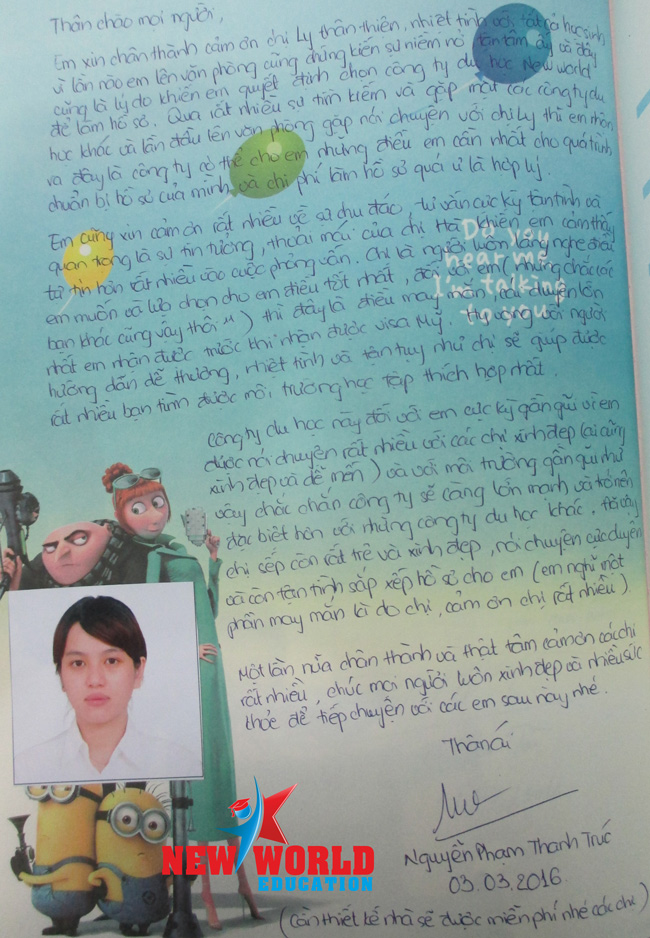 Thân chào mọi người,
Em xin chân thành cảm ơn chị Ly thân thiện, nhiệt tình với tất cả học sinh
vì lần nào em lên văn phòng cũng chứng kiến sự niềm nở tận tâm ấy và đây
cũng là lý do khiến em quyết định chọn công ty du học New world
để làm hồ sơ. Qua rất nhiều sự tìm kiếm và gặp mặt các công ty du
học khác và lần đầu lên văn phòng gặp nói chuyện với chị Ly thì em nhận
ra đây là công ty có thể cho em những điều em cần nhất cho quá trình
chuẩn bị hồ sơ của mình và chi phí làm hồ sơ quá ư là hợp lý.
Em cũng xin cảm ơn rất nhiều về sự chu đáo, tư vấn cực kỳ tận tình và
quan trọng là sự tin tưởng, thoải mái của chị Hà khiến em cảm thấy
tự tin hơn rất nhiều vào cuộc phỏng vấn. Chị là người luôn lắng nghe điều
em muốn và lựa chọn cho em điều tốt nhất, đối với em (nhưng chắc các
bạn khác cũng vậy thôi) thì đây là điều may mắn, cái duyên lớn
nhất em nhận được trước khi nhận được visa Mỹ. Hy vọng với người
hướng dẫn dễ thương, nhiệt tình và tận tụy như chị sẽ giúp được
rất nhiều bạn tìm được môi trường học tập thích hợp nhất.
Do you
hear me
I'm talking
to you
Công ty du học này đối với em cực kỳ gần gũi vì em
được nói chuyện rất nhiều với các chị xinh đẹp (ai cũng
xinh đẹp và dễ mến) và với môi trường gần gũi như
vậy chắc chắn công ty sẽ càng lớn mạnh và trở nên
đặc biệt hơn với những công ty du học khác, tại vậy
chị sếp còn rất trẻ và xinh đẹp, nói chuyện cực duyên
và còn tận tình sắp xếp hồ sơ cho em (em nghĩ một
phần may mắn là do chị, cảm ơn chị rất nhiều).
Một lần nữa chân thành và thật tâm cảm ơn các chị
rất nhiều, chúc mọi người luôn xinh đẹp và nhiều sức
khỏe để tiếp chuyện với các em sau này nhé.
Thân ái
Nguyễn Phạm Thanh Trúc
03.03.2016.
(Cần thiết kế nhà sẽ được miễn phí nhé các chị)
NEW WORLD
EDUCATION